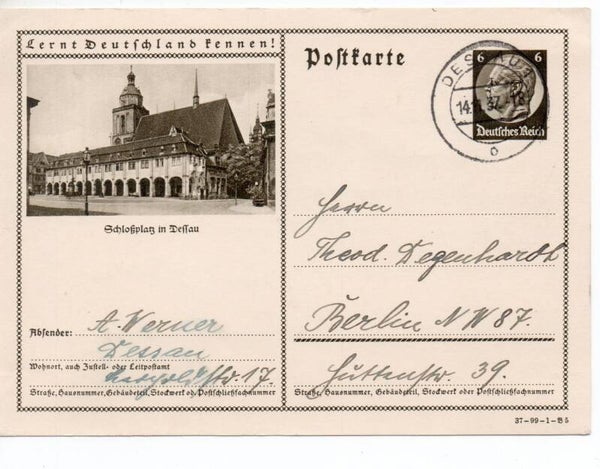 Lernt Deutschland kennen!
Postkarte
6 6
Deutsches Reich
DESSAU 1
14. 37.-18
o
Schloßplatz in Dessau
Herrn
Theod. Degenhardt
Berlin NW 87.
Huttenstr. 39.
Straße, Hausnummer, Gebäudeteil, Stockwerk oder Postschließfachnummer
Absender: A. Werner
Dessau
Wohnort, auch Zustell- oder Leitpostamt
Leopoldstr. 17.
Straße, Hausnummer, Gebäudeteil, Stockwerk od. Postschließfachnummer
37-99-1-B5